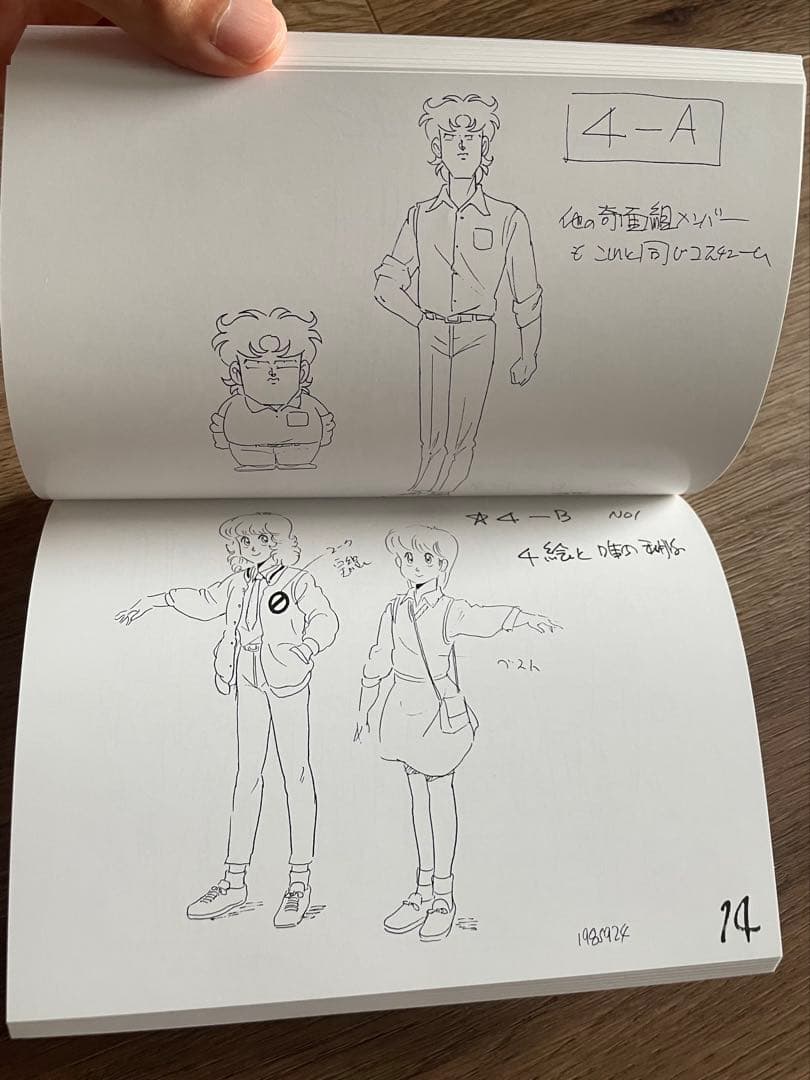 4-A
他の奇面組メンバー
も これと同じコスチューム
☆4-B No1
4 絵と唯の私服
マーク
ベスト
1985924
14